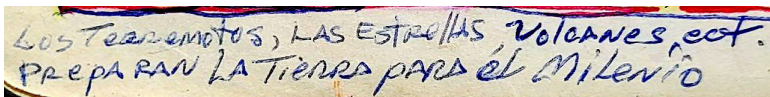 Los Terremotos, LAS EstRellAS Volcanes, ect.
PREPARAN LA TieRRA pARA él MilENio